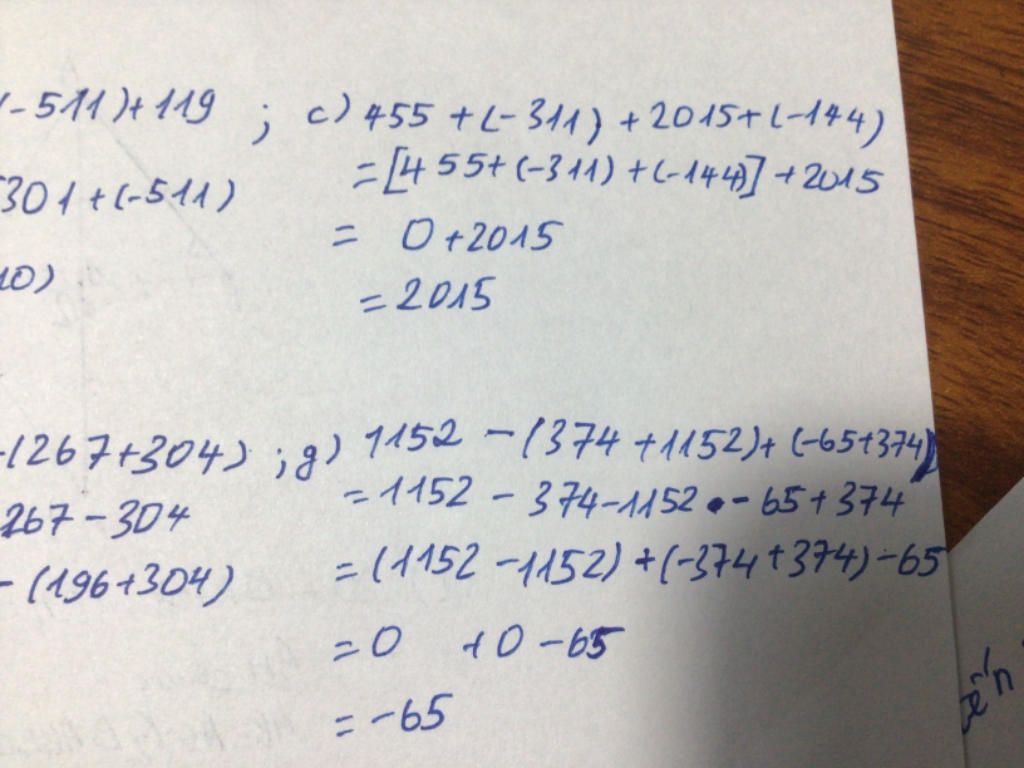 (-511)+119 ; c) 455 + (-311) + 2015 + (-144)
301 + (-511)
= [455+(-311) + (-144)] + 2015
= 0 + 2015
10)
= 2015
-(267+304) ; g) 1152 - (374 + 1152) + (-65+374)
267 - 304
= 1152 - 374 - 1152 - 65 + 374
- (196+304)
= (1152 - 1152) + (-374 + 374) - 65
= 0 + 0 - 65
= -65